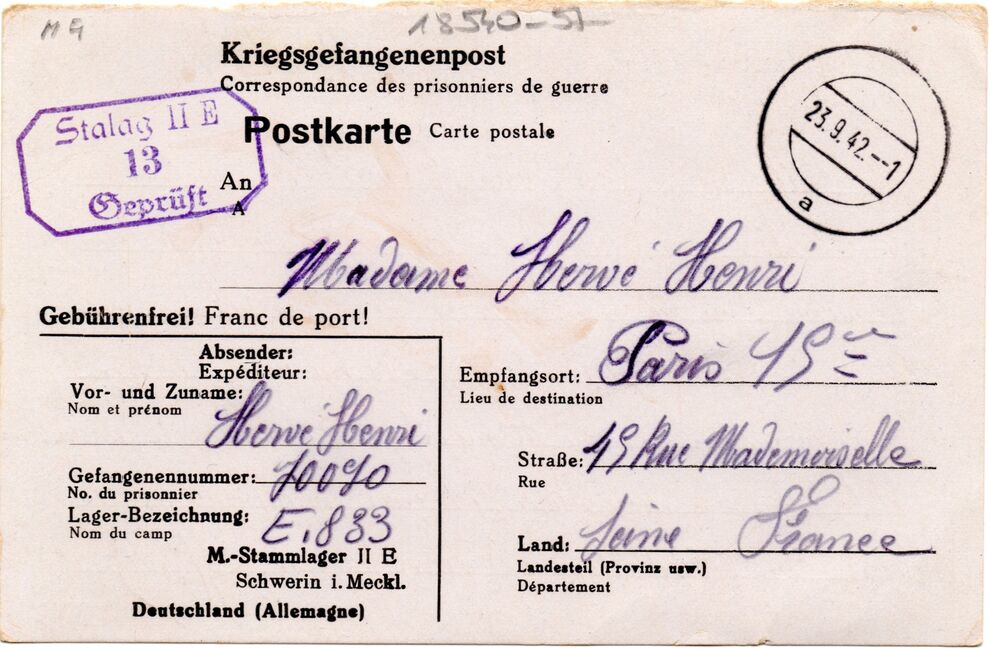 M G
18540-57
Kriegsgefangenenpost
Correspondance des prisonniers de guerre
Postkarte Carte postale
Stalag II E
13
Geprüft
23.9.42.--1
a
An
A
Madame Hervé Henri
Gebührenfrei! Franc de port!
Absender:
Expéditeur:
Vor- und Zuname:
Nom et prénom
Hervé Henri
Gefangenennummer: 70090
No. du prisonnier
Lager-Bezeichnung: E.833
Nom du camp
M.-Stammlager II E
Schwerin i. Meckl.
Deutschland (Allemagne)
Empfangsort: Paris 15e
Lieu de destination
Straße: 15 Rue Mademoiselle
Rue
Land: Seine France
Landesteil (Provinz usw.)
Département